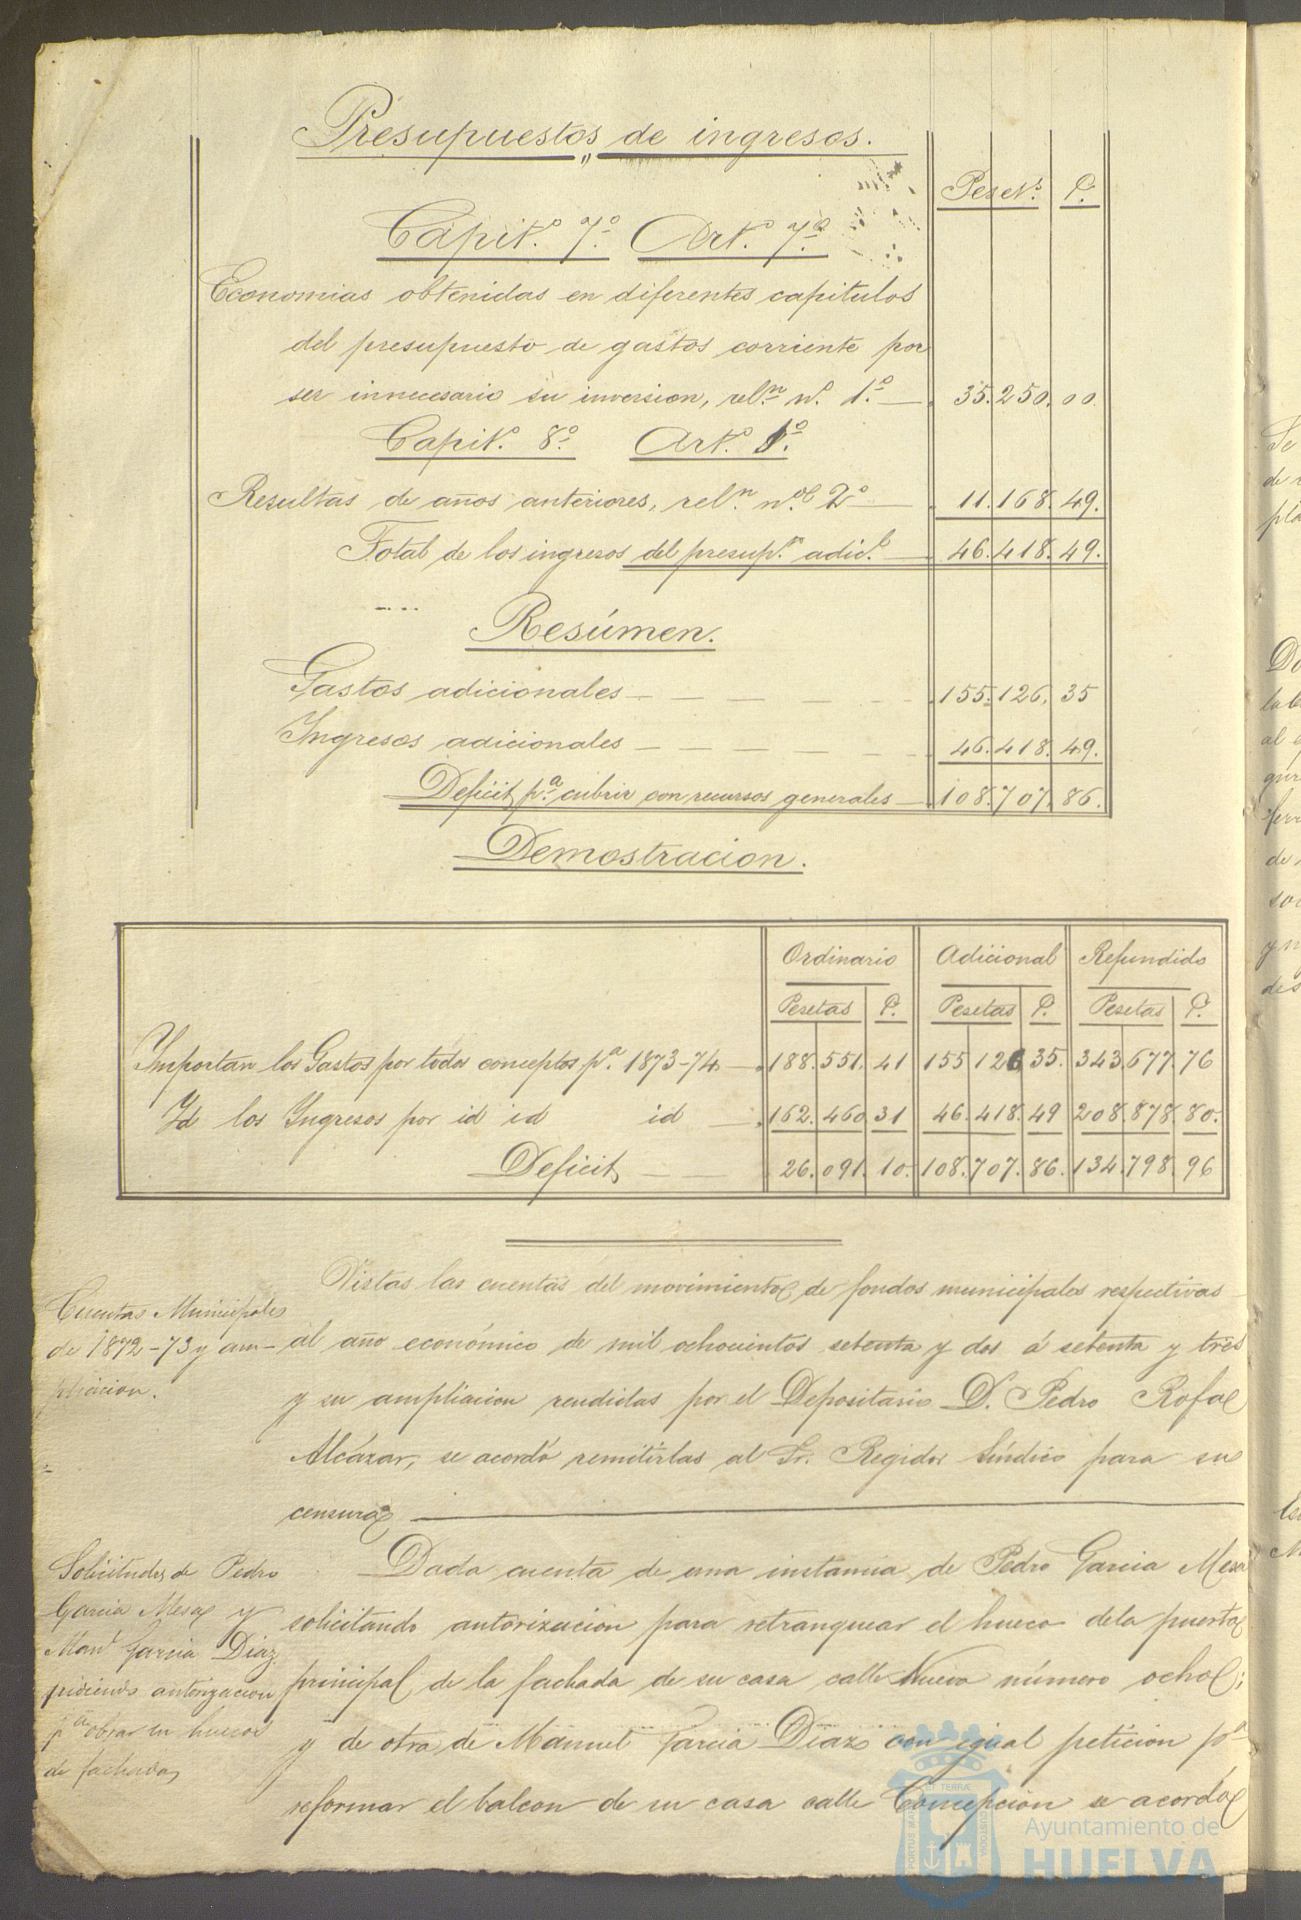 Presupuestos de ingresos.
Peset.s C.s
Capit.o 7.o Art.o 7.o
Economias obtenidas en diferentes capitulos
del presupuesto de gastos corriente por
ser innecesario su inversion, rel.n n.o 1.o 35.250.00
Capit.o 8.o Art.o 1.o
Resultas de años anteriores, rel.n n.o 2.o 11.168.49.
Total de los ingresos del presup.to adic.l 46.418.49.
Resúmen.
Gastos adicionales 155.126.35
Ingresos adicionales 46.418.49.
Deficit p.a cubrir con recursos generales 108.707.86.
Demostracion.
Ordinario Adicional Refundido
Pesetas C.s Pesetas C.s Pesetas C.s
Importan los Gastos por todos conceptos p.a 1873-74 188.551.41 155.126.35. 343.677.76
Id los Ingresos por id id id 162.460.31 46.418.49 208.878.80.
Deficit 26.091.10. 108.707.86. 134.798.96
Cuentas Municipales
de 1872-73 y am-
pliacion.
Vistas las cuentas del movimiento de fondos municipales respectivas
al año económico de mil ochocientos setenta y dos á setenta y tres
y su ampliacion rendidas por el Depositario D. Pedro Rofa
Alcázar, se acordó remitirlas al Sr. Regidor Síndico para su
censura
Solicitudes de Pedro
Garcia Mesa y
Man.l Garcia Diaz
pidiendo autorizacion
p.a obrar en huecos
de fachadas
Dada cuenta de una instancia de Pedro Garcia Mesa
solicitando autorizacion para retranquear el hueco dela puerta
principal de la fachada de su casa calle Nueva número ocho;
y de otra de Manuel Garcia Diaz con igual peticion p.a
reformar el balcon de su casa calle Concepcion se acordó
Ayuntamiento de
HUELVA